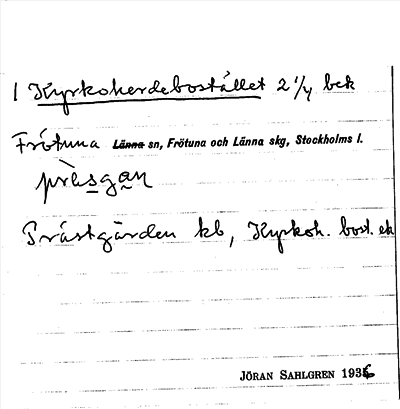 1 Kyrkoherdebostället 2 1/4 bek
Frötuna Länna sn, Frötuna och Länna skg, Stockholms l.
pràsgan
Prästgården kb, Kyrkoh. bost. ek
JÖRAN SAHLGREN 1936